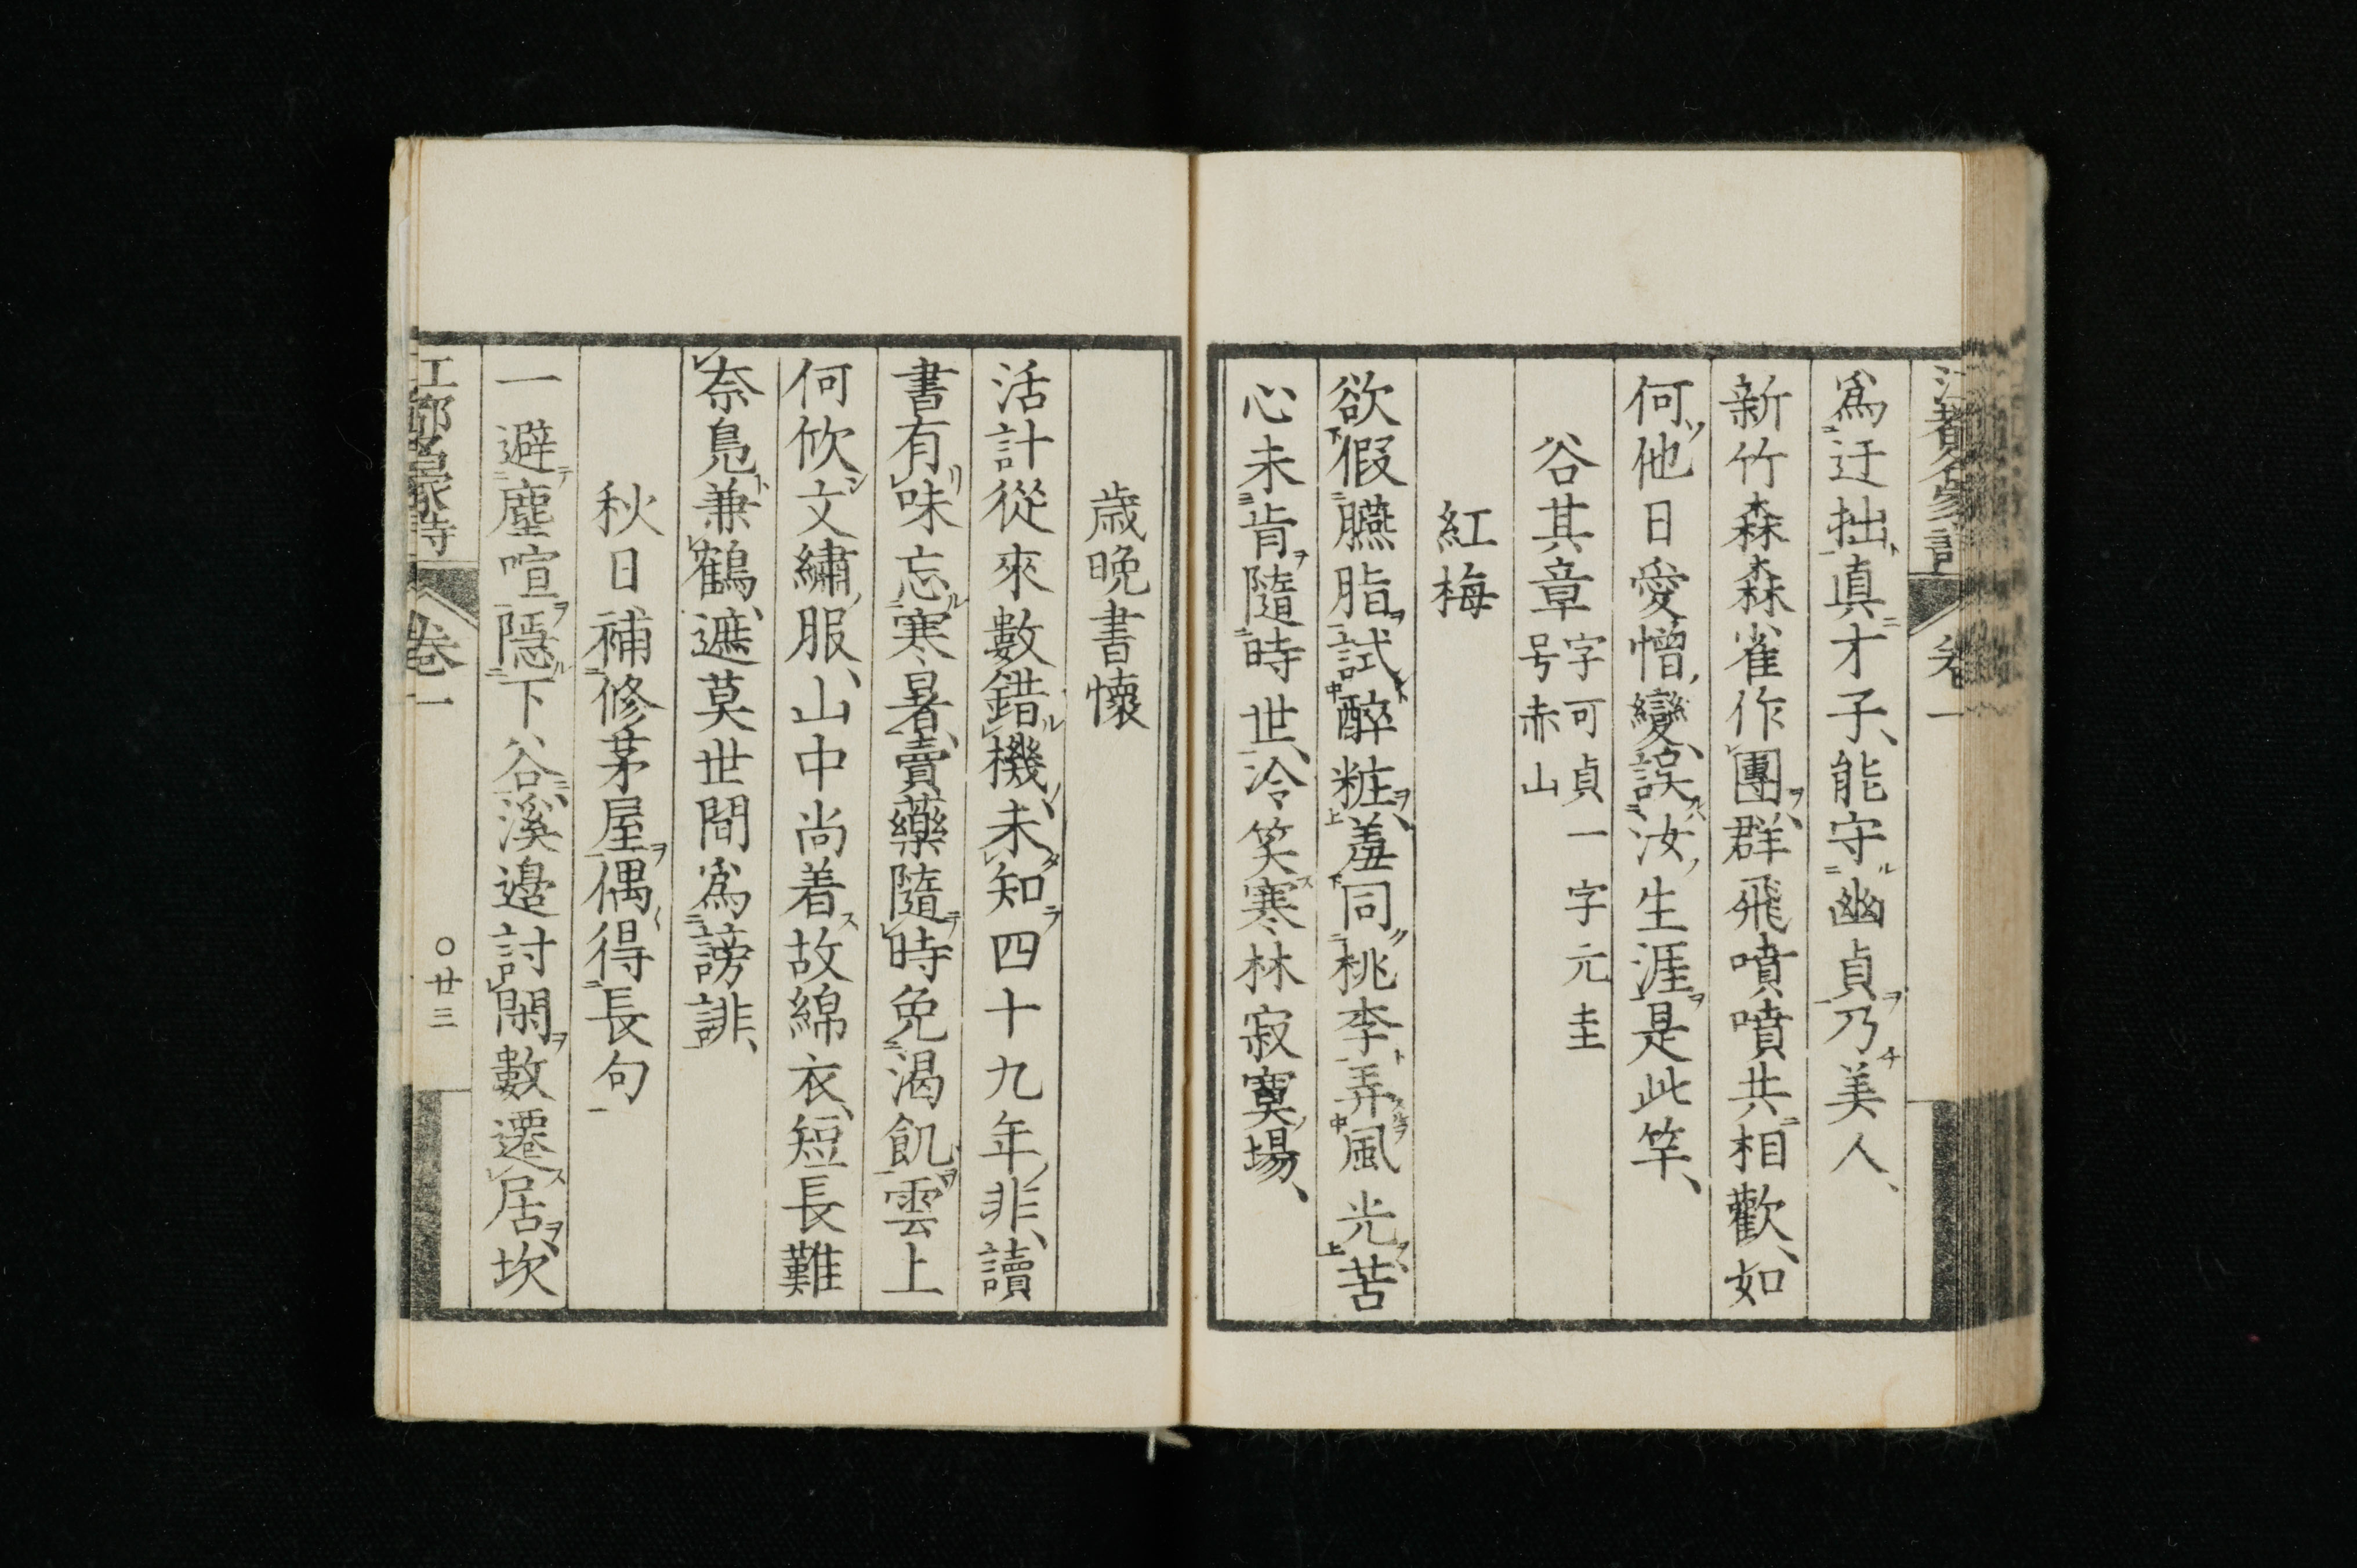 爲迂拙眞才子、能守幽貞乃美人、
新竹森森雀作團、群飛噴噴共相歡、如
何他日愛憎變、誤汝生涯是此竿、
谷其章 字可貞一字元圭
号赤山
紅梅
欲假臙脂試醉粧、羞同桃李弄風光、苦
心未肯隨時世、冷笑寒林寂寞場、
歳晩書懷
活計從來數錯機、未知四十九年非、讀
書有味忘寒暑、賣藥隨時免渴飢、雲上
何攸文繡服、山中尚着故綿衣、短長難
奈鳬兼鶴、遮莫世間爲謗誹、
秋日補修茅屋偶得長句
一避塵喧隱下谷、溪邉討閑數遷居、坎
卷一
〇廿三